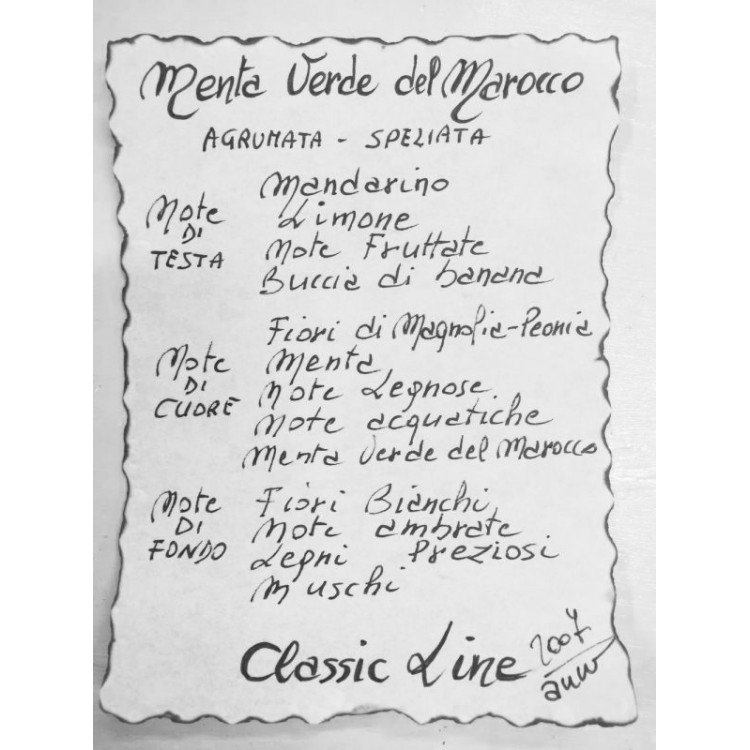 Menta Verde del Marocco
AGRUMATA - SPEZIATA
Note DI TESTA
Mandarino
Limone
Note Fruttate
Buccia di banana
Note DI CUORE
Fiori di Magnolia-Peonia
Menta
Note Legnose
Note acquatiche
Menta Verde del Marocco
Note DI FONDO
Fiori Bianchi
Note ambrate
Legni Preziosi
Muschi
Classic Line